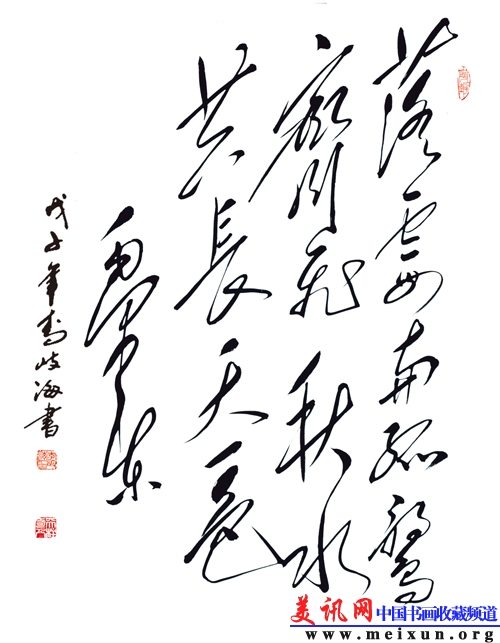 落霞與孤鶩
齊飛秋水
共長天一色
毛澤東
戊子年岐海書
美讯网 中国书画收藏频道
www.meixun.org